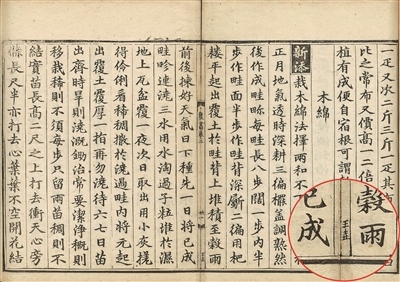 一疋又次二斤三斤一疋其
比之常布又價高一二倍
植有成便自宿根可謂
木綿
新添栽木綿法擇兩和不
正月地氣透時深耕三遍擺蓋調熟然
後作成畦畛每畦長八步闊一步內半
步作畦面半步作畦背深劚二遍用杷
摟平起出覆土於畦背上堆積至穀雨
前後揀好天氣日下種先一日將已成
畦畛連澆三水用水淘過子粒堆於濕
地上瓦盆覆一夜次日取出用小灰搓
得伶俐看稀稠撒於澆過畦內將元起
出覆土覆厚一指再勿澆待六七日苗
出齊時旱則澆溉鋤治常要潔淨穊則
移栽稀則不須每步只留兩苗稠則不
結實苗長高二尺之上打去衝天心旁
條長尺半亦打去心葉葉不空開花結
穀雨
已成